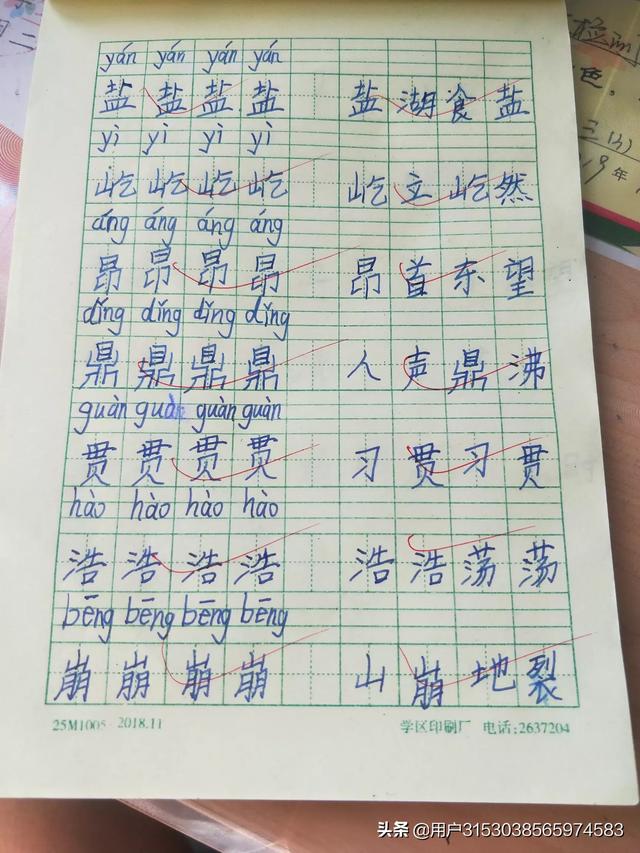 yán yán yán yán
盐 盐 盐 盐 盐 湖 食 盐
yì yì yì yì
屹 屹 屹 屹 屹 立 屹 然
áng áng áng áng
昂 昂 昂 昂 昂 首 东 望
dǐng dǐng dǐng dǐng
鼎 鼎 鼎 鼎 人 声 鼎 沸
guàn guàn guàn guàn
贯 贯 贯 贯 习 贯 习 贯
hào hào hào hào
浩 浩 浩 浩 浩 浩 荡 荡
bēng bēng bēng bēng
崩 崩 崩 崩 山 崩 地 裂
25M1005 2018.11 学区印刷厂 电话:2637204
检测
色。
三(3)
19年
头条 @用户3153038565974583